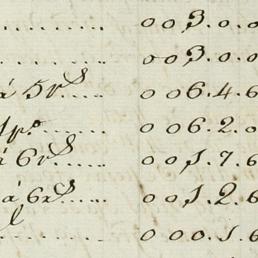 ..... 003.0.0
..... 003.0.0
á 5 r^s..... 006.4.6
1p^o....... 006.2.0
á 6 r^s.... 001.7.6
á 6 r^s..... 001.2.6
....... 000.1.6